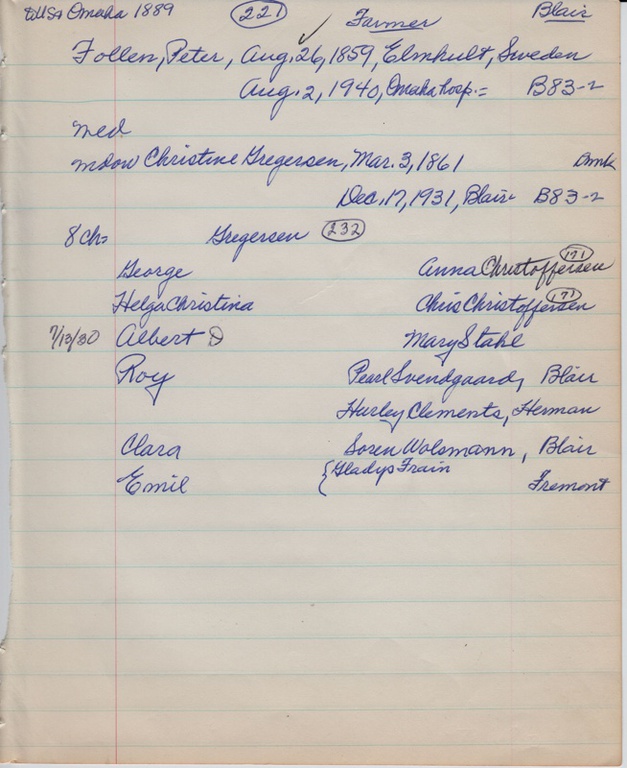 to USA Omaha 1889 221 ✓ Farmer Blair
Follen, Peter, Aug. 26, 1859, Elmhult, Sweden
Aug. 2, 1940, Omaha hosp.= B83-2
med
mdow Christine Gregersen, Mar. 3, 1861 Dmk
Dec. 17, 1931, Blair B83-2
8 Ch= Gregersen 232
George Anna Christoffersen 171
Helga Christina Chris Christoffersen 171
7/13/30 Albert D Mary Stahl
Roy Pearl Svendgaard, Blair
Hurley Clements, Herman
Clara Soren Wolsmann, Blair
Emil {Gladys Frain Fremont